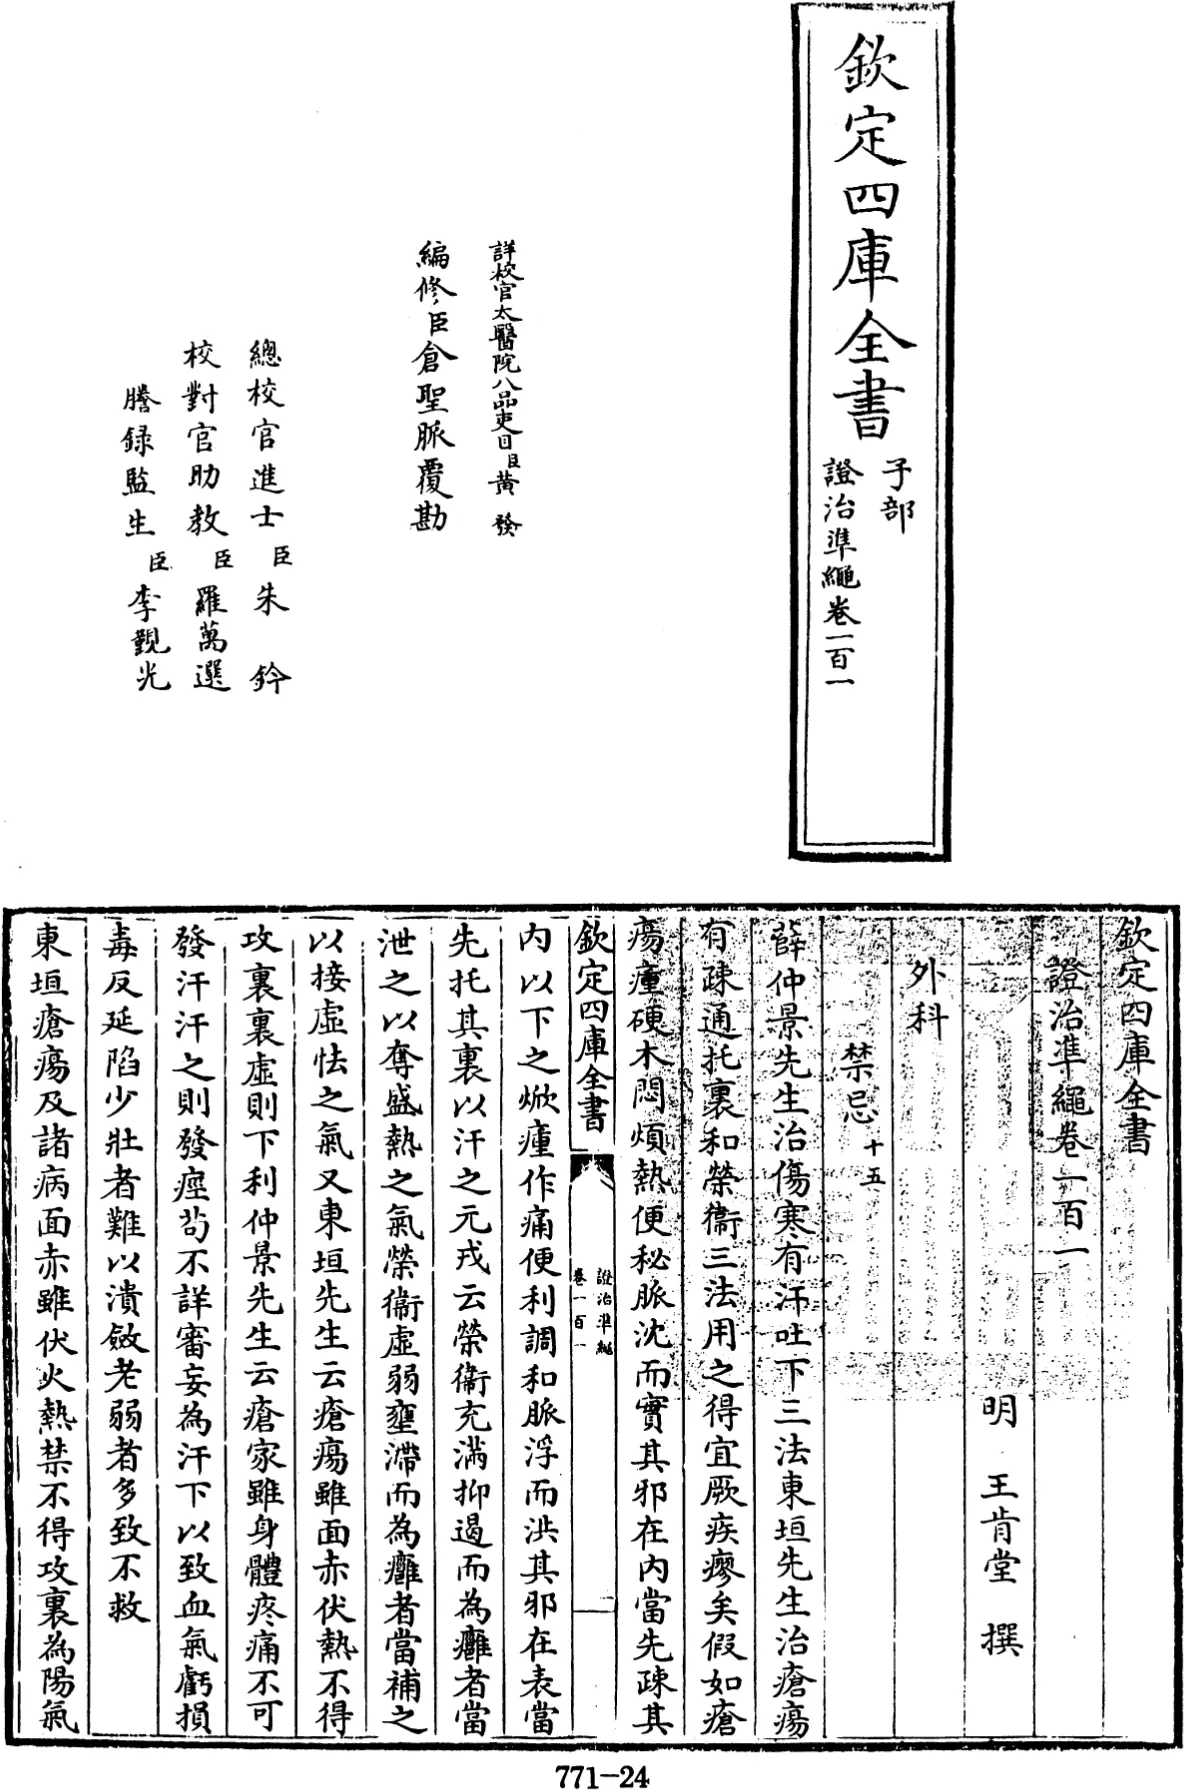 欽定四庫全書
子部
證治準繩卷一百一
詳校官太醫院八品吏目臣黃發
編修臣倉聖脈覆勘
總校官進士臣朱鈐
校對官助教臣羅萬選
謄録監生臣李觀光
欽定四庫全書
證治準繩卷一百一
明 王肯堂 撰
外科
禁忌十五
薛仲景先生治傷寒有汗吐下三法東垣先生治瘡瘍
有疎通托裏和榮衞三法用之得宜厥疾瘳矣假如瘡
瘍瘇硬木悶煩熱便秘脈沈而實其邪在内當先疎其
内以下之焮瘇作痛便利調和脈浮而洪其邪在表當
先托其裏以汗之元戎云榮衞充滿抑遏而為癰者當
泄之以奪盛熱之氣榮衞虛弱壅滯而為癰者當補之
以接虛怯之氣又東垣先生云瘡瘍雖面赤伏熱不得
攻裏裏虛則下利仲景先生云瘡家雖身體疼痛不可
發汗汗之則發痙茍不詳審妄為汗下以致血氣虧損
毒反延陷少壯者難以潰斂老弱者多致不救
東垣瘡瘍及諸病面赤雖伏火熱禁不得攻裏為陽氣
欽定四庫全書
證治準繩
卷一百一
一
771-24